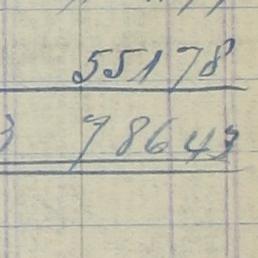 55178
3 78643